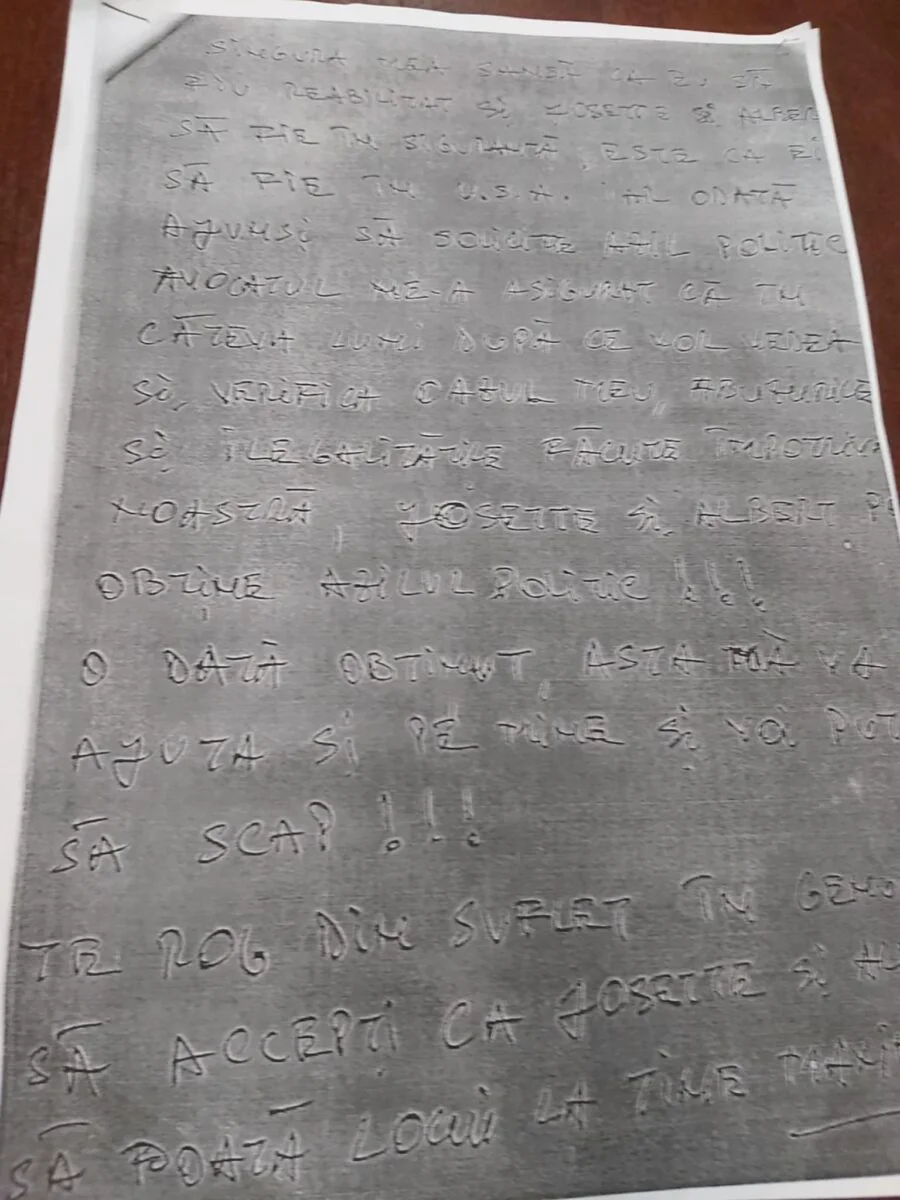 SINGURA MEA ȘANSĂ CA EI SĂ
FIU REABILITAT ȘI JOSETTE ȘI ALBER
SĂ FIE ÎN SIGURANȚĂ, ESTE CA EI
SĂ FIE ÎN U.S.A. IAR ODATĂ
AJUNȘI SĂ SOLICITE AZIL POLITIC
AVOCATUL NE-A ASIGURAT CĂ ÎN
CÂTEVA LUNI DUPĂ CE VOR VEDEA
ȘI VERIFICA CAZUL MEU, ABUZURILE
ȘI ILEGALITĂȚILE FĂCUTE ÎMPOTRIVA
NOASTRĂ, JOSETTE ȘI ALBERT PO
OBȚINE AZILUL POLITIC !!!
O DATĂ OBȚINUT, ASTA MĂ VA
AJUTA ȘI PE MINE ȘI VOI PUT
SĂ SCAP !!!
TE ROG DIN SUFLET ÎN GENU
SĂ ACCEPȚI CA JOSETTE ȘI AL
SĂ POATĂ LOCUI LA TINE MAXI